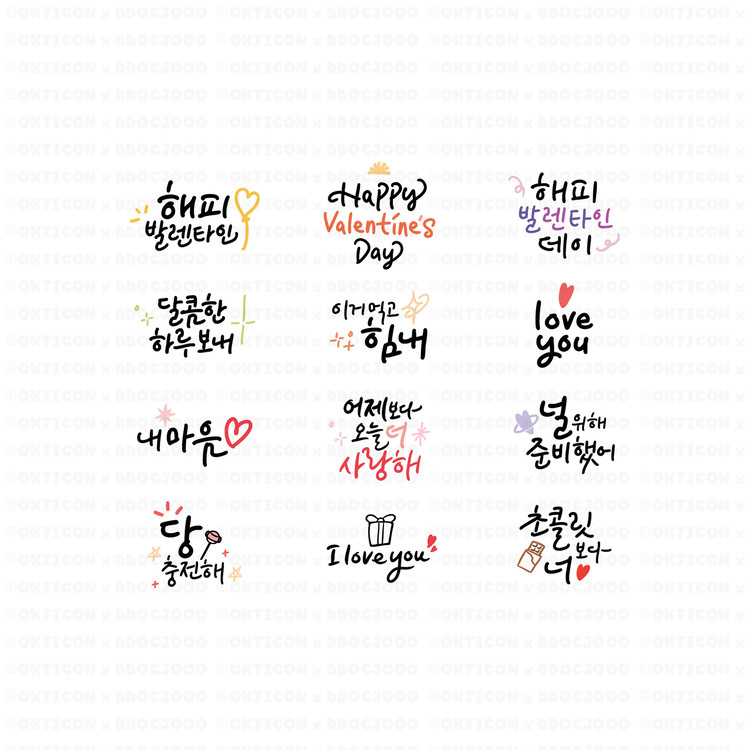 해피
발렌타인
Happy
Valentine's
Day
해피
발렌타인
데이
달콤한
하루보내
이거먹고
힘내
love
you
내마음
어제보다
오늘 더
사랑해
널위해
준비했어
당
충전해
I love you
초콜릿
보다
너
©OKTICON x DDOC3000